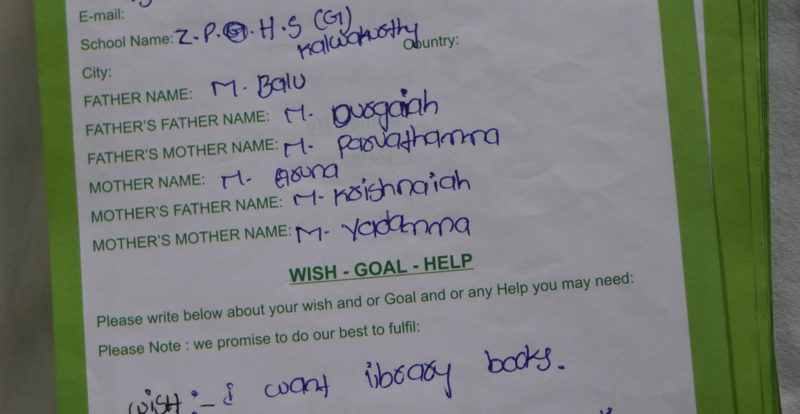 E-mail:
School Name: Z.P.G.H.S (G)
Kalwakurthy
Country:
City:
FATHER NAME: M. Balu
FATHER'S FATHER NAME: M. Durgaiah
FATHER'S MOTHER NAME: M. Parvathamma
MOTHER NAME: M. Aruna
MOTHER'S FATHER NAME: M. Krishnaiah
MOTHER'S MOTHER NAME: M. Yadamma
WISH - GOAL - HELP
Please write below about your wish and or Goal and or any Help you may need:
Please Note : we promise to do our best to fulfil:
wish :- I want library books.